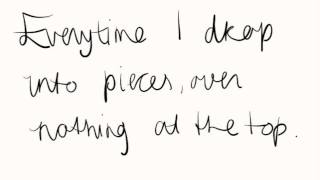 Everytime I drop
into pieces, over
nothing at the top.